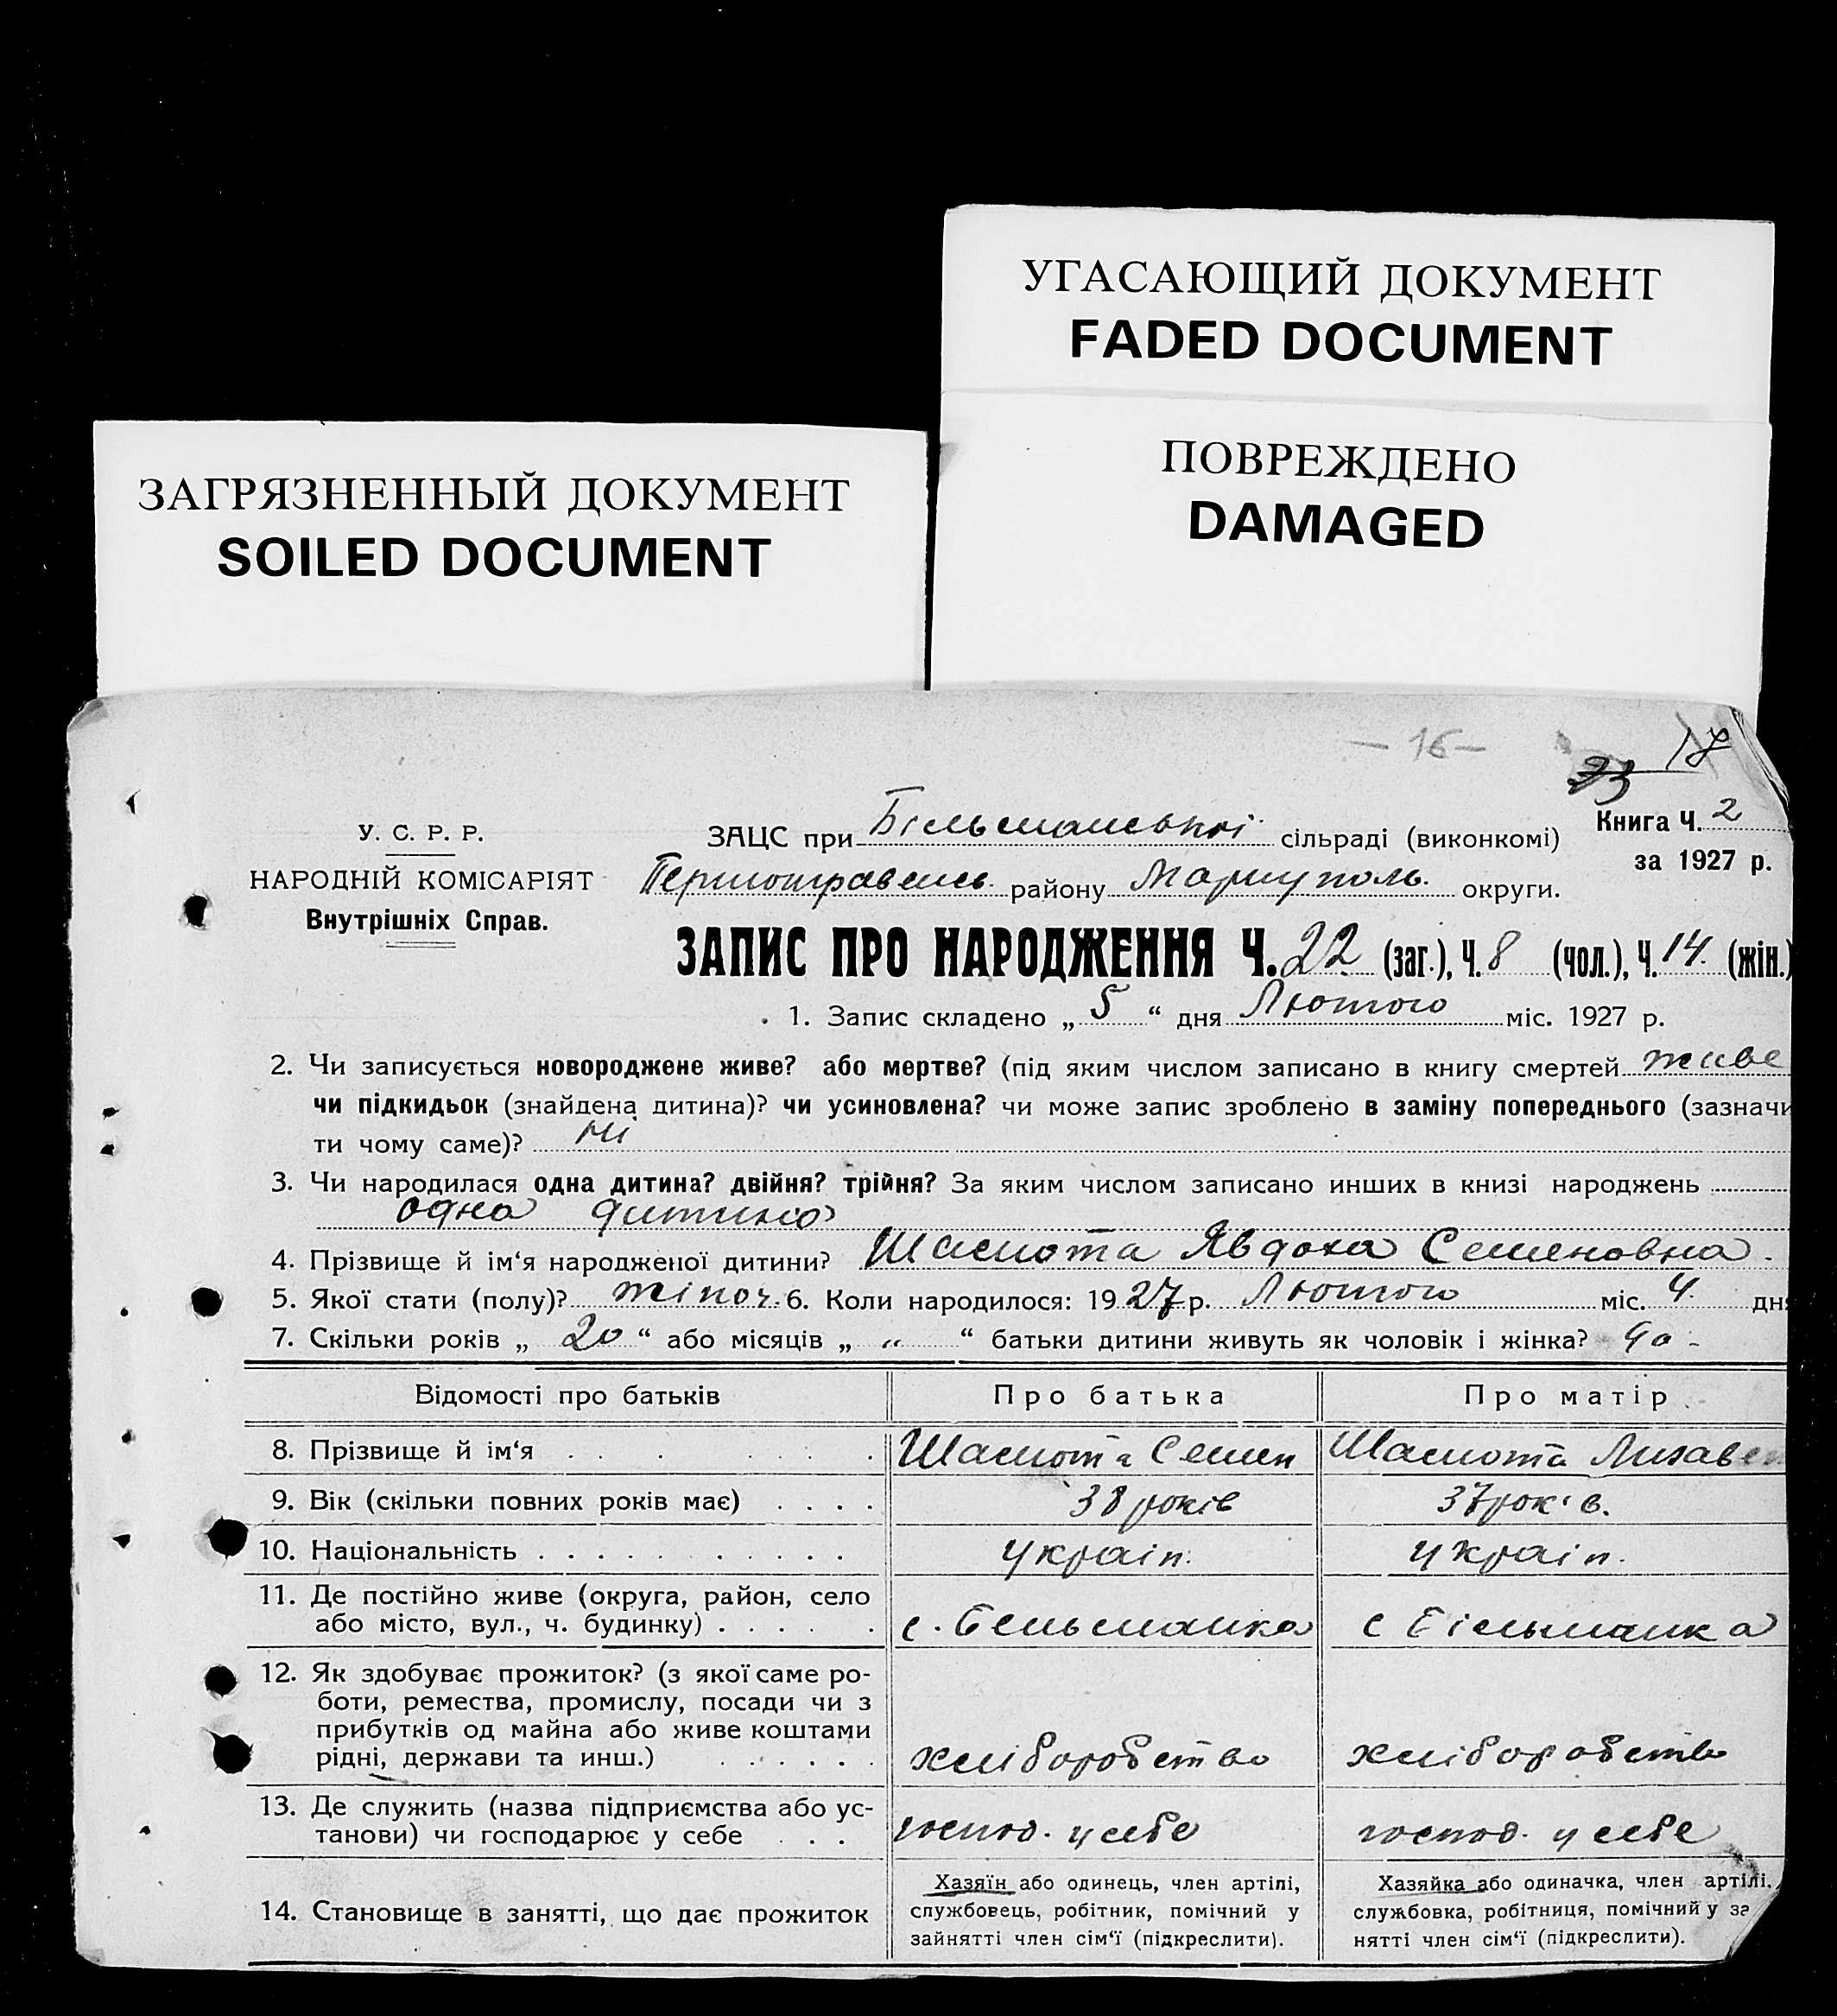 УГАСАЮЩИЙ ДОКУМЕНТ
FADED DOCUMENT
ПОВРЕЖДЕНО
DAMAGED
ЗАГРЯЗНЕННЫЙ ДОКУМЕНТ
SOILED DOCUMENT
— 16 —
23 17
У. С. Р. Р.
НАРОДНІЙ КОМІСАРІЯТ
Внутрішніх Справ.
ЗАЦС при Більманській сільраді (виконкомі)
Книга Ч. 2
за 1927 р.
Першотравенев. району Маріуполь. округи.
ЗАПИС ПРО НАРОДЖЕННЯ Ч. 22 (заг.), Ч. 8 (чол.), Ч. 14 (жін.)
1. Запис складено „ 5 “ дня Лютого міс. 1927 р.
2. Чи записується новороджене живе? або мертве? (під яким числом записано в книгу смертей живе
чи підкидьок (знайдена дитина)? чи усиновлена? чи може запис зроблено в заміну попереднього (зазначи
ти чому саме)? ні
3. Чи народилася одна дитина? двійня? трійня? За яким числом записано инших в книзі народжень
одна дитина
4. Прізвище й ім‘я народженої дитини? Шамота Явдоха Семеновна
5. Якої стати (полу)? жіноч. 6. Коли народилося: 1927 р. Лютого міс. 4 дня
7. Скільки років „ 20 “ або місяців „ „ “ батьки дитини живуть як чоловік і жінка? да -
Відомості про батьків Про батька Про матір
8. Прізвище й ім‘я Шамота Семен Шамота Лизавет
9. Вік (скільки повних років має) 38 років 37 років.
10. Національність україн. україн.
11. Де постійно живе (округа, район, село
або місто, вул., ч. будинку) с. Більманка с Більманка
12. Як здобуває прожиток? (з якої саме ро-
боти, ремества, промислу, посади чи з
прибутків од майна або живе коштами
рідні, держави та инш.) хліборобство хліборобство
13. Де служить (назва підприємства або ус-
танови) чи господарює у себе господ. у себе господ. у себе
14. Становище в занятті, що дає прожиток
Хазяїн або одинець, член артілі,
службовець, робітник, помічний у
зайнятті член сім‘ї (підкреслити).
Хазяйка або одиначка, член артілі,
службовка, робітниця, помічний у за
нятті член сім‘ї (підкреслити).